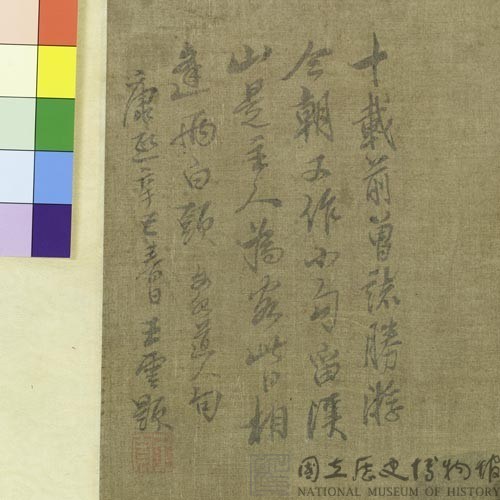 十載前曾誌勝游
今朝又作小句留溪
山是主人為客此日相
逢白頭 道人句
康熙辛巳春日王雲題
國立歷史博物館
NATIONAL MUSEUM OF HISTORY